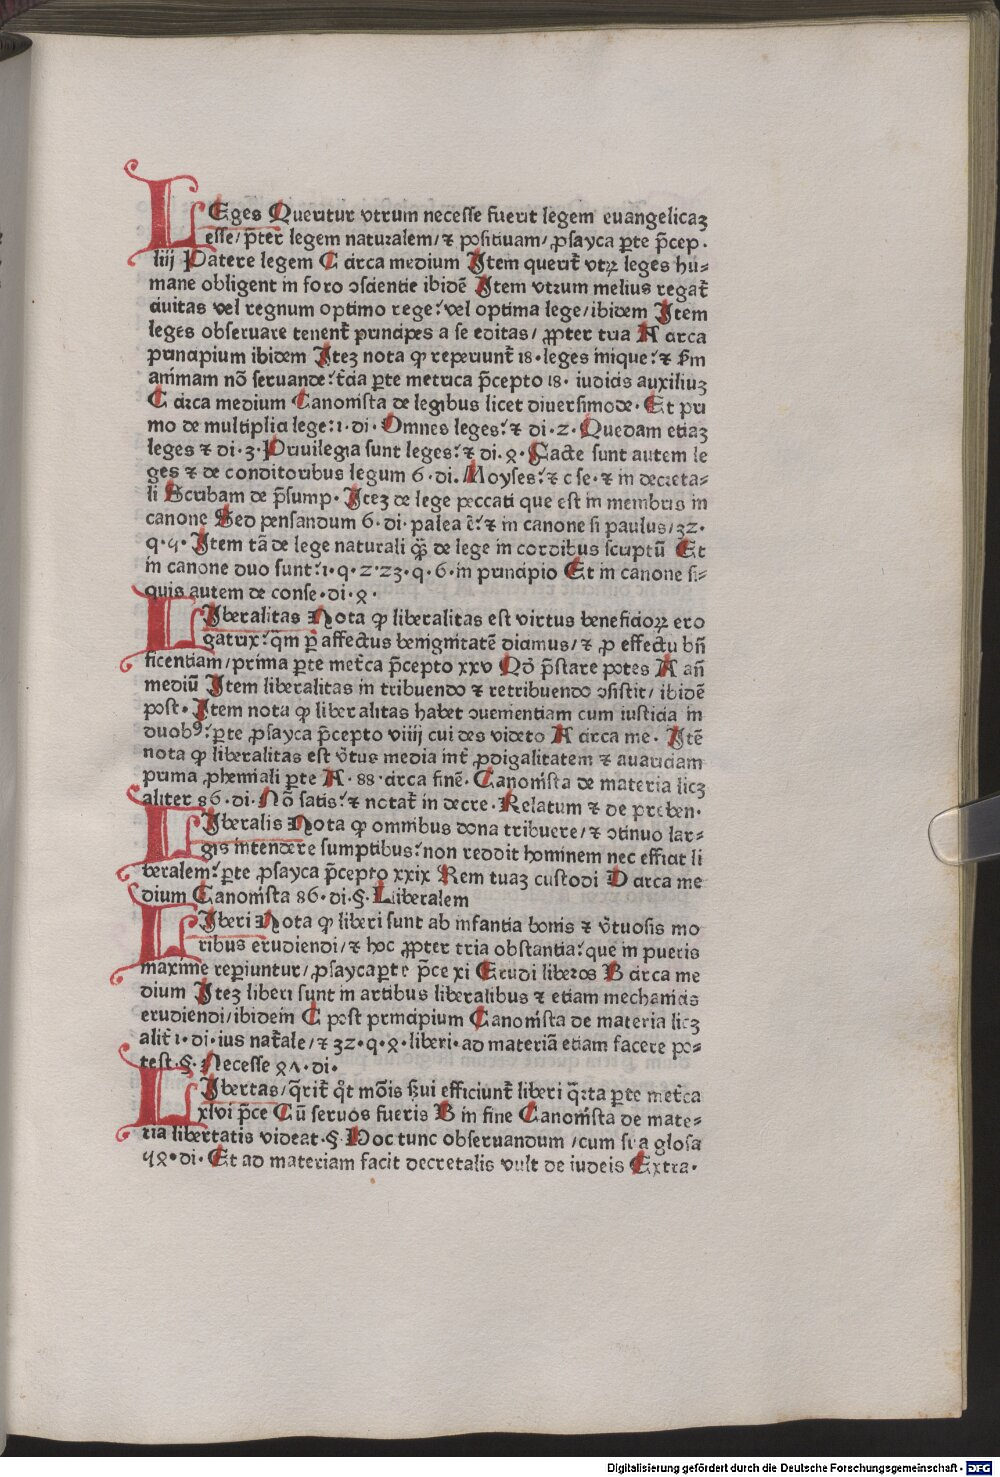 LEges Queritur vtrum necesse fuerit legem euangelicaʒ
esse/ p̄ter legem naturalem/ ⁊ positiuam/ ꝓsayca ꝑte p̄cep·
liij Patere legem C circa medium Itē querit̄ vtꝝ leges hu⸗
mane obligent in foro ↄscientie ibidē Item vtrum melius regat̄
ciuitas vel regnum optimo rege:ʼ vel optima lege/ ibidem Item
leges obseruare tenent̄ principes a se editas/ ꝓpter tria A circa
principium ibidem Iteʒ nota ꝙ reperiunt̄ 18· leges inique:ʼ ⁊ s̄m
animam nō seruande:ʼ t̄cia ꝑte metrica p̄cepto 18· iudicis auxiliuʒ
C circa medium Canonista de legibus licet diuersimode· Et pri
mo de multiplici lege:ʼ 1· di· Omnes leges:ʼ ⁊ di· 2· Quedam etiaʒ
leges ⁊ di· 3· Priuilegia sunt leges:ʼ ⁊ di· 8· Facte sunt autem le
ges ⁊ de conditoribus legum 6· di. Moyses:ʼ ⁊ c se· ⁊ in decreta⸗
li Scribam de p̄sump· Iteʒ de lege peccati que est in membris in
canone Sed pensandum 6· di· palea ē:ʼ ⁊ in canone si paulus/ 32·
q· 5· Item tā de lege naturali q̄ꝫ de lege in cordibus scriptū Et
in canone duo sunt:ʼ 1· q· 2· 23· q· 6· in principio Et in canone si⸗
quis autem de conse· di· 8·
LIberalitas Nota ꝙ liberalitas est virtus beneficioꝝ ero
gatrix:ʼ q̄m ꝑ affectus benignitatē dicimus/ ⁊ ꝓ effectu bn̄
ficentiam/ prima ꝑte met̄ca p̄cepto xxv Qō p̄stare potes A an̄
mediū Item liberalitas in tribuendo ⁊ retribuendo ↄsistit/ ibidē
post· Item nota ꝙ liberalitas habet ↄuenientiam cum iusticia in
duobꝰ:ʼ ꝑte ꝓsayca p̄cepto viiij cui des videto A circa me· Itē
nota ꝙ liberalitas est v̄tus media int̄ ꝓdigalitatem ⁊ auariciam
prima ꝓhemiali ꝑte A· 88· circa finē· Canonista de materia licʒ
aliter 86· di· Nō satis:ʼ ⁊ notat̄ in decre· Relatum ⁊ de preben·
LIberalis Nota ꝙ omnibus dona tribuere/ ⁊ ↄtinuo lar⸗
gis intendere sumptibus:ʼ non reddit hominem nec efficit li
beralem:ʼ ꝑte ꝓsayca p̄cepto xxix Rem tuaʒ custodi D circa me
dium Canonista 86· di· §· Liberalem
LIberi Nota ꝙ liberi sunt ab infantia bonis ⁊ v̄tuosis mo
ribus erudiendi/ ⁊ hoc ꝓpter tria obstantia:ʼ que in pueris
maxime reperiuntur/ ꝓsayca ꝑte p̄ce xi Erudi liberos B circa me
dium Iteʒ liberi sunt in artibus liberalibus ⁊ etiam mechanicis
erudiendi/ ibidem C post principium Canonista de materia licʒ
alit̄ 1· di· ius nat̄ale/ ⁊ 32· q· 8· liberi· ad materiā etiam facere po⸗
test· §· Necesse 8Λ· di·
LIbertas/ q̄rit̄ q̊t mōis s̄ui efficiunt̄ liberi q̄rta ꝑte met̄ca
xlvi p̄ce Cū seruos fueris B in fine Canonista de mate⸗
ria libertatis videat· §· Hoc tunc obseruandum /cum sua glosa
58· di· Et ad materiam facit decretalis vult de iudeis Extra·
Digitalisierung gefördert durch die Deutsche Forschungsgemeinschaft - DFG